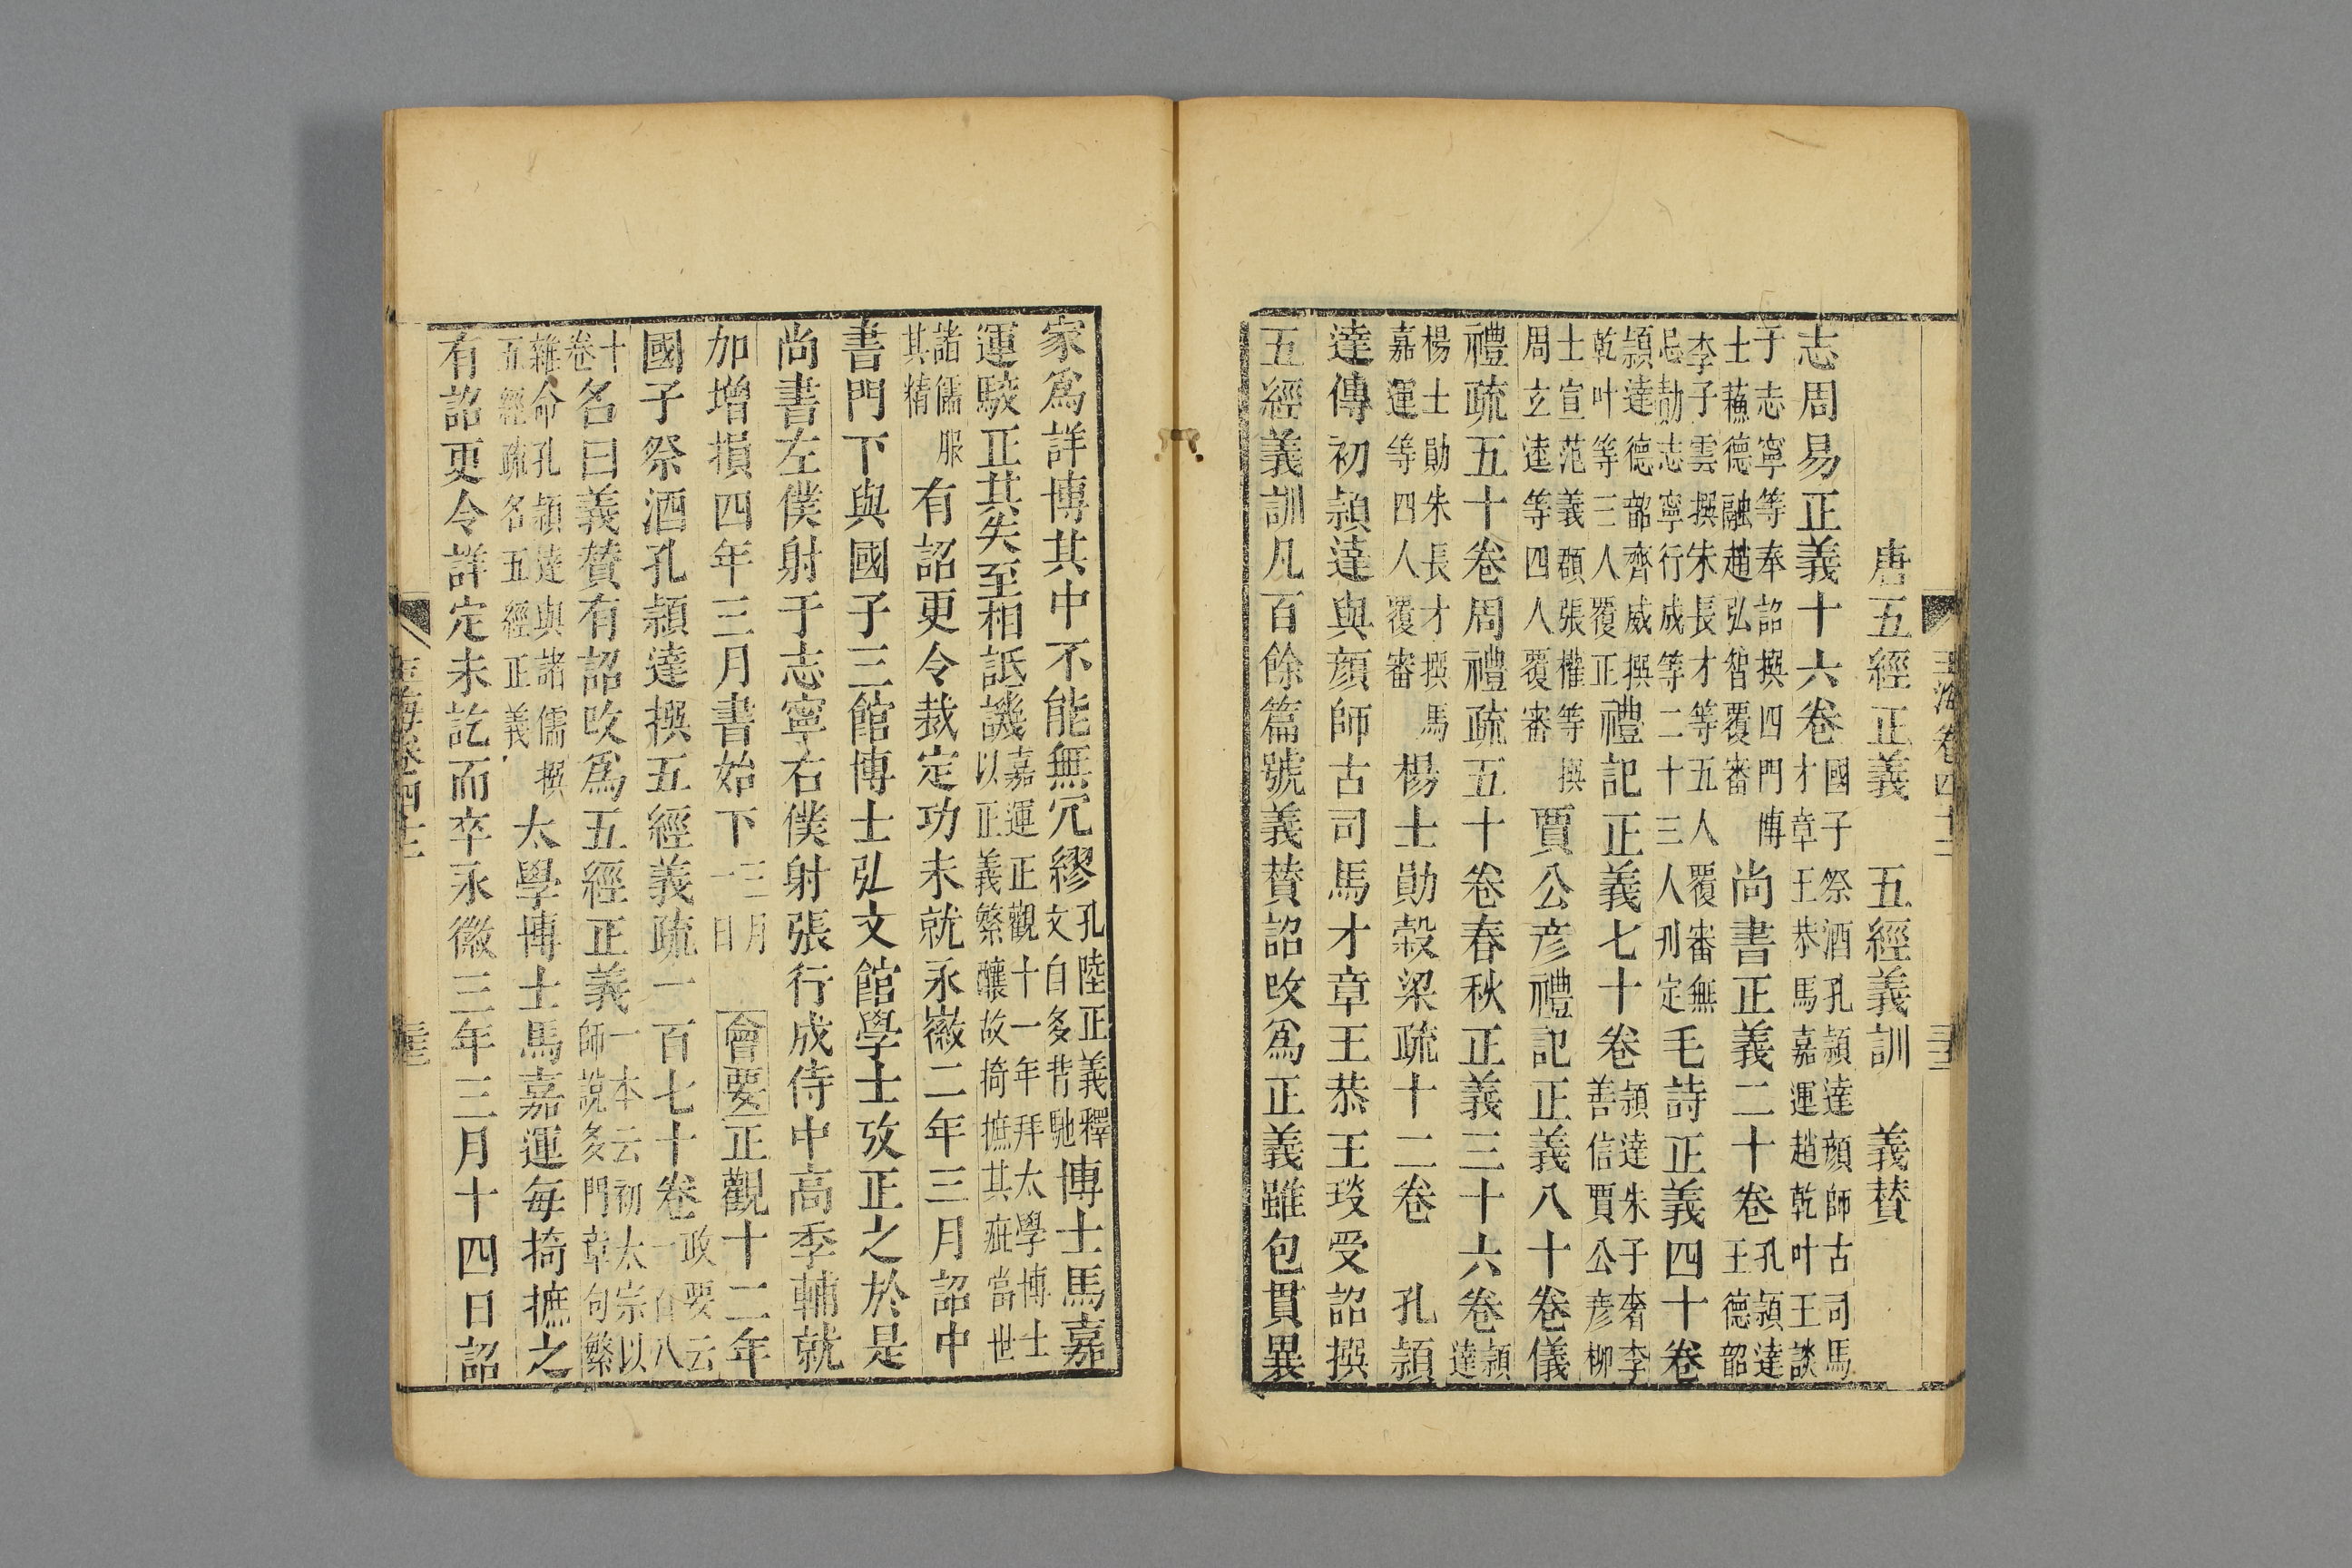 玉海卷四十二
唐五經正義　五經義訓　義贊
志周易正義十六卷國子祭酒孔頴達顔師古司馬才章王恭馬嘉運趙乾叶王談
于志寧等奉詔撰四門博士蘇德融趙弘智覆審尚書正義二十卷孔頴達王德韶
李子雲撰朱長才等五人覆審無忌勣志寧行成等二十三人刋定毛詩正義四十卷
頴達德韶齊威撰乾叶等三人覆正禮記正義七十卷頴達朱于奢李善信賈公彥柳
士宣范義頵張權等撰周玄達等四人覆審賈公彥禮記正義八十卷儀
禮疏五十卷周禮疏五十卷春秋正義三十六卷頴達
楊士勛朱長才撰馬嘉運等四人覆審楊士勛榖梁疏十二卷　孔頴
達傳初頴達與顔師古司馬才章王恭王琰受詔撰
五經義訓凡百餘篇號義贊詔攺爲正義雖包貫異
家爲詳博其中不能無冗繆孔陸正義釋文自多背馳博士馬嘉
運駮正其失至相詆譏嘉運正觀十一年拜太學博士以正義繁釀故掎摭其疵當世
諸儒服其精有詔更令裁定功未就永徽二年三月詔中
書門下與國子三館博士弘文館學士攷正之於是
尚書左僕射于志寧右僕射張行成侍中高季輔就
加增損四年三月書始下三月一日會要正觀十二年
國子祭酒孔頴達撰五經義疏一百七十卷政要云一百八
十卷名曰義贊有詔攺爲五經正義一本云初太宗以師說多門章句繁
雜命孔頴達與諸儒撰五經疏名五經正義太學博士馬嘉運每掎摭之
有詔更令詳定未訖而卒永徽三年三月十四日詔